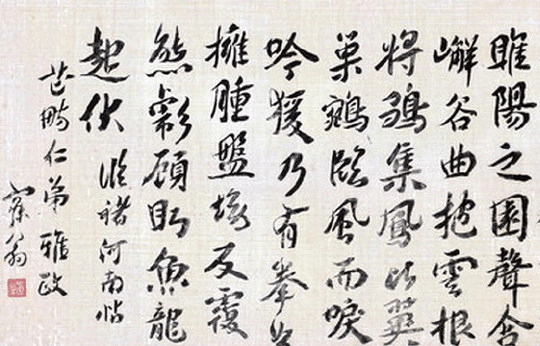 睢陽之園聲含
嶰谷曲抱雲根
將鶵集鳳比翼
巢鵷臨風而唳
吟猨乃有拳
擁腫盤坳反覆
熊彪顧盼魚龍
起伏
臨褚河南帖
仁弟雅政
寐翁